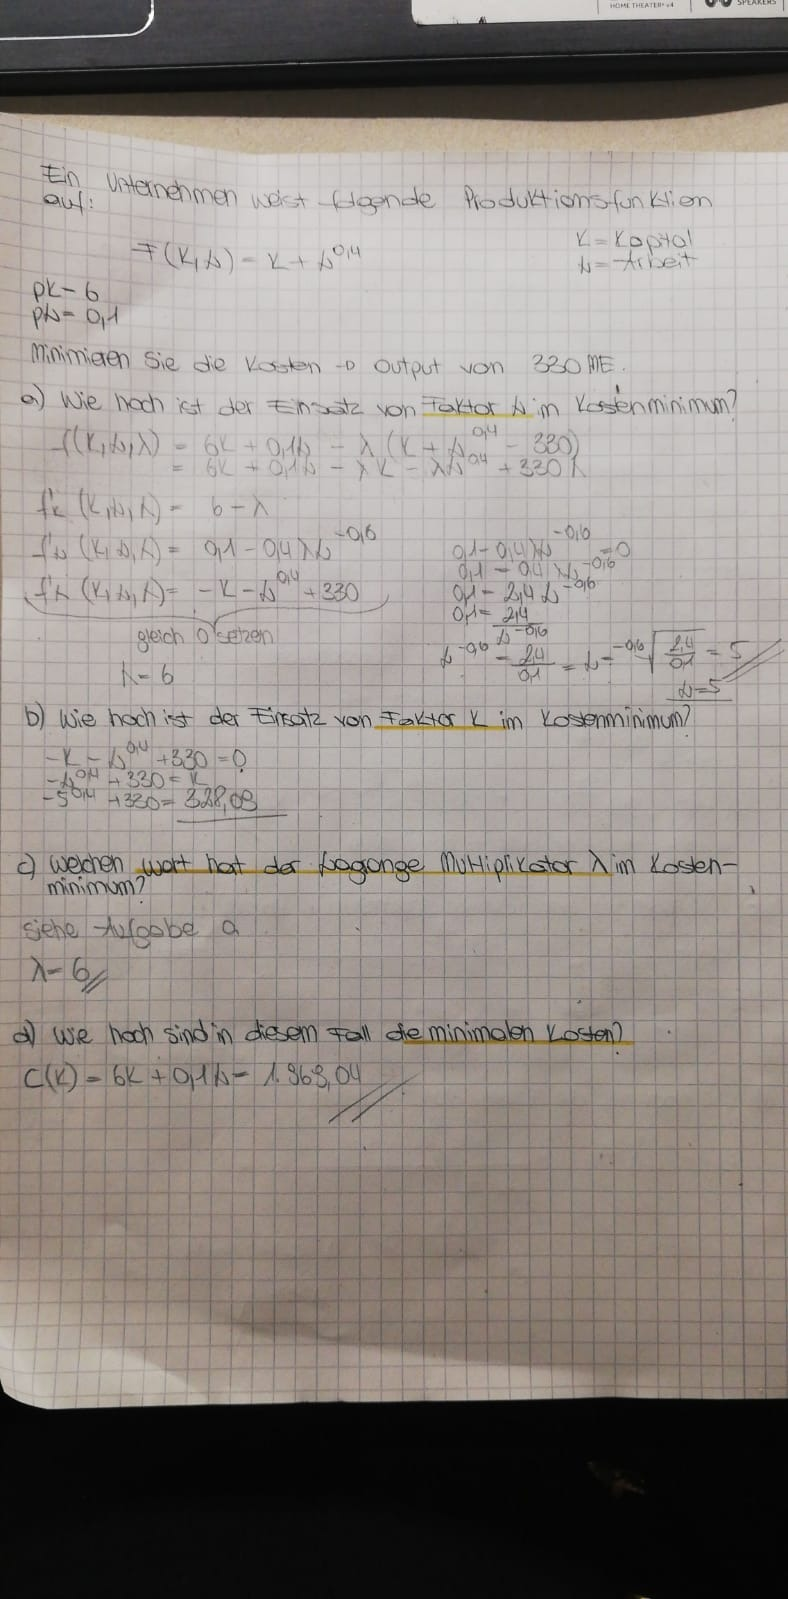 HOME THEATER v4
SPEAKERS
Ein Unternehmen weist folgende Produktionsfunktion
auf:
F(K,L) = K + L^0,4
K = Kapital
L = Arbeit
pK = 6
pL = 0,1
Minimieren Sie die Kosten → Output von 330 ME.
a) Wie hoch ist der Einsatz von Faktor L im Kostenminimum?
f(K,L,λ) = 6K + 0,1L - λ (K + L^0,4 - 330)
= 6K + 0,1L - λK - λL^0,4 + 330λ
f'K (K,L,λ) = 6 - λ
f'L (K,L,λ) = 0,1 - 0,4λL^-0,6
f'λ (K,L,λ) = -K - L^0,4 + 330
gleich 0 setzen
λ = 6
0,1 - 0,4λL^-0,6 = 0
0,1 = 0,4 λL^-0,6
0,1 = 2,4 L^-0,6
0,1 = 2,4 / L^-0,6
L^-0,6 = 2,4/0,1 = L = -0,6√(2,4/0,1) = 5
L=5
b) Wie hoch ist der Einsatz von Faktor K im Kostenminimum?
-K - L^0,4 + 330 = 0
-L^0,4 + 330 = K
-5^0,4 + 330 = 328,09
c) Welchen Wert hat der Lagrange Multiplikator λ im Kosten-
minimum?
siehe Aufgabe a
λ = 6
d) Wie hoch sind in diesem Fall die minimalen Kosten?
C(K) = 6K + 0,1L = 1.969,04